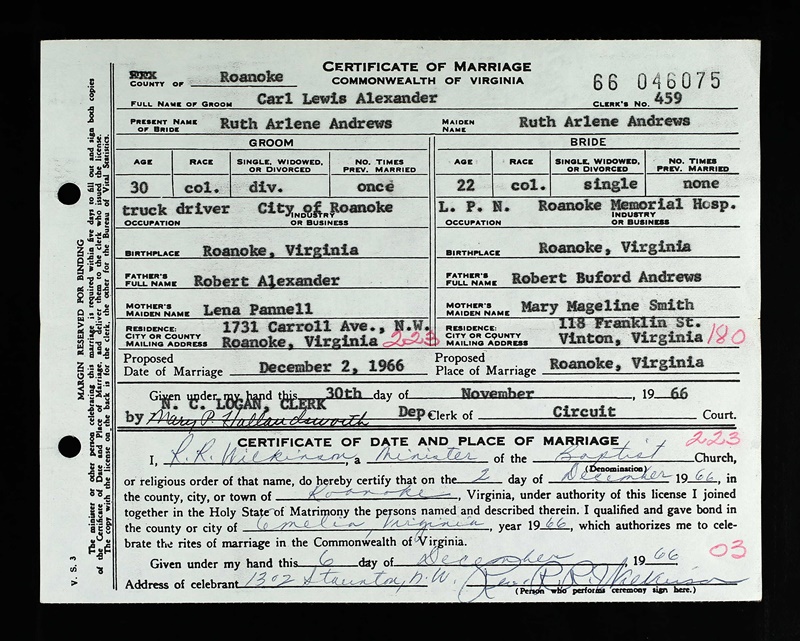 CERTIFICATE OF MARRIAGE
COMMONWEALTH OF VIRGINIA
COUNTY OF Roanoke
66 046075
FULL NAME OF GROOM Carl Lewis Alexander CLERK'S NO. 459
PRESENT NAME OF BRIDE Ruth Arlene Andrews MAIDEN NAME Ruth Arlene Andrews
GROOM BRIDE
AGE RACE SINGLE, WIDOWED, OR DIVORCED NO. TIMES PREV. MARRIED AGE RACE SINGLE, WIDOWED, OR DIVORCED NO. TIMES PREV. MARRIED
30 col. div. once 22 col. single none
truck driver City of Roanoke L. P. N. Roanoke Memorial Hosp.
OCCUPATION INDUSTRY OR BUSINESS OCCUPATION INDUSTRY OR BUSINESS
BIRTHPLACE Roanoke, Virginia BIRTHPLACE Roanoke, Virginia
FATHER'S FULL NAME Robert Alexander FATHER'S FULL NAME Robert Buford Andrews
MOTHER'S MAIDEN NAME Lena Pannell MOTHER'S MAIDEN NAME Mary Mageline Smith
RESIDENCE: 1731 Carroll Ave., N.W. RESIDENCE: 118 Franklin St.
CITY OR COUNTY MAILING ADDRESS Roanoke, Virginia 223 CITY OR COUNTY MAILING ADDRESS Vinton, Virginia 180
Proposed Date of Marriage December 2, 1966 Proposed Place of Marriage Roanoke, Virginia
Given under my hand this 30th day of November, 1966
N. C. LOGAN, CLERK
by Mary P. Hollandsworth Dep Clerk of Circuit Court.
CERTIFICATE OF DATE AND PLACE OF MARRIAGE 223
I, R. R. Wilkinson, a Minister of the Baptist Church,
(Denomination)
or religious order of that name, do hereby certify that on the 2 day of December 1966, in
the county, city, or town of Roanoke, Virginia, under authority of this license I joined
together in the Holy State of Matrimony the persons named and described therein. I qualified and gave bond in
the county or city of Amelia Virginia, year 1966, which authorizes me to cele-
brate the rites of marriage in the Commonwealth of Virginia.
03
Given under my hand this 6 day of December, 1966
Address of celebrant 1302 Staunton, N.W. Rev. R. R. Wilkinson
(Person who performs ceremony sign here.)
V. S. 3
MARGIN RESERVED FOR BINDING
The minister or other person celebrating this marriage is required within five days to fill out and sign both copies
of the Certificate of Date and Place of Marriage, and deliver them to the clerk who issued the license.
The copy with the license on the back is for the clerk, the other for the Bureau of Vital Statistics.